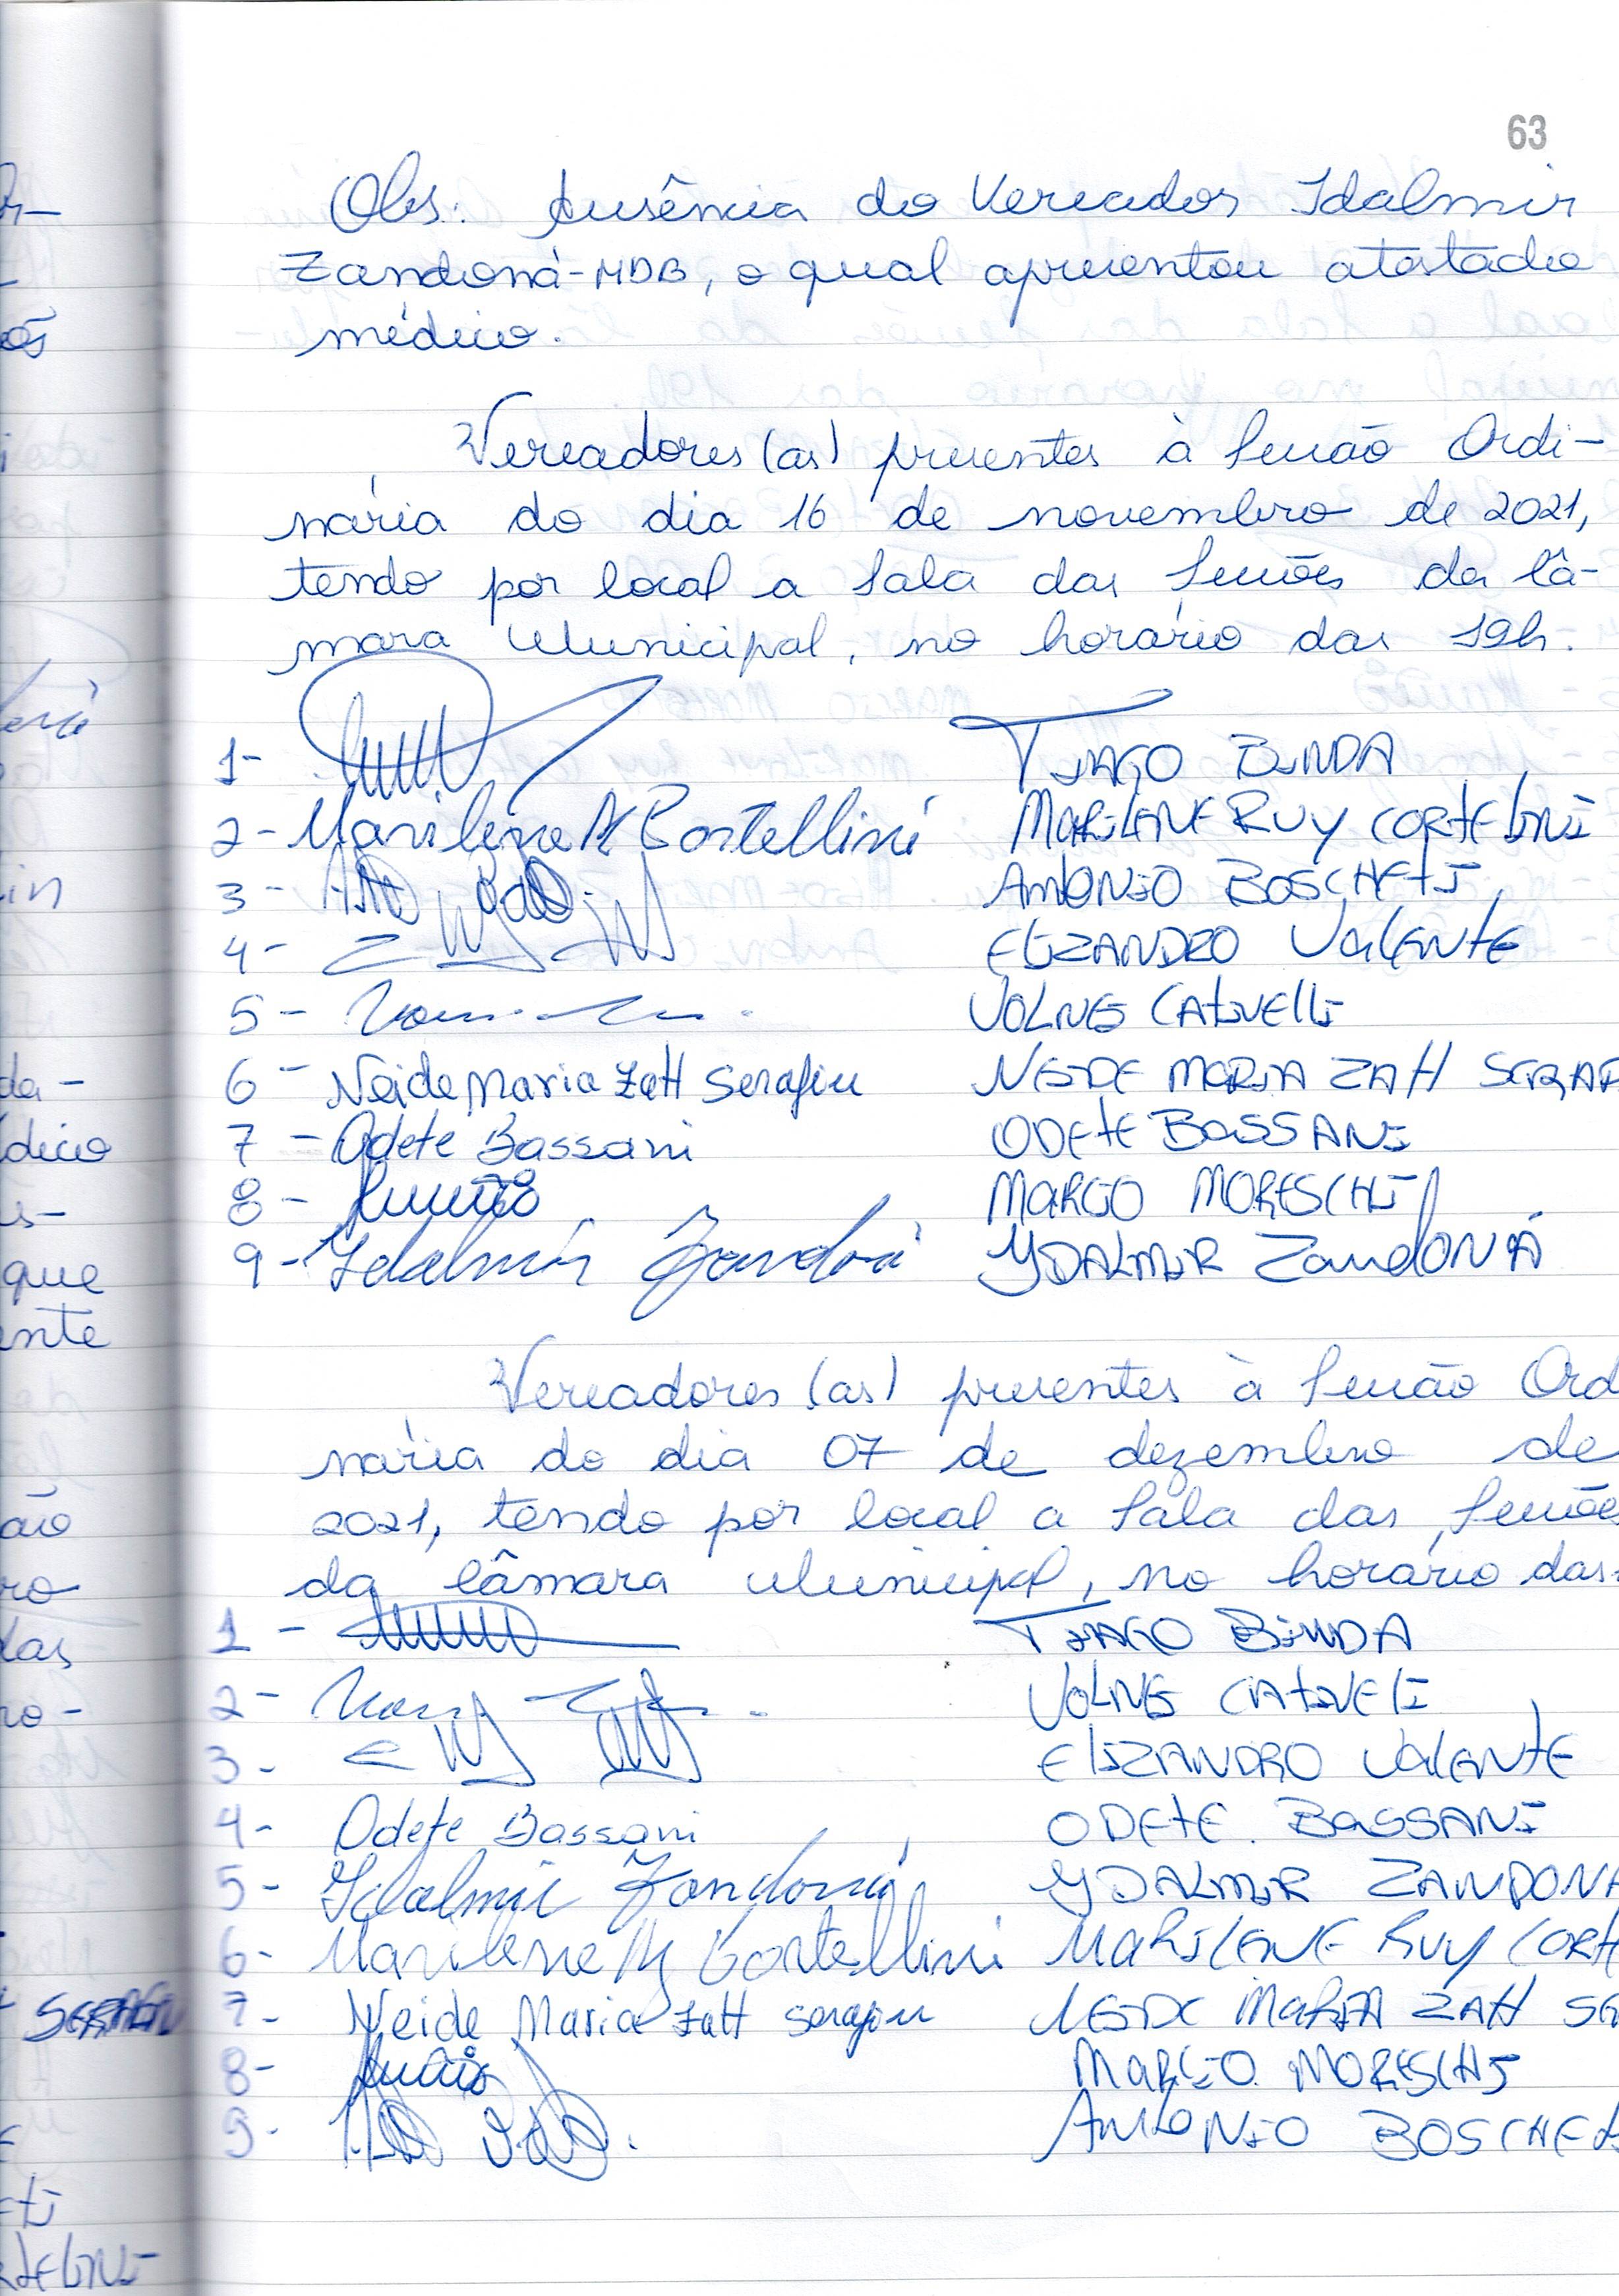 63
Obs: Ausência do Vereador Idalmir
Zandoná-MDB, o qual apresentou atestado
médico.
Vereadores (as) presentes à Sessão Ordi-
nária do dia 16 de novembro de 2021,
tendo por local a Sala das Sessões da Câ-
mara Municipal, no horário das 19h.
1- TIAGO BINDA
2- Marilene R Cortellini MARILENE RUY CORTELINI
3- ANTONIO BOSCHETI
4- ELIZANDRO VALENTE
5- VOLNEI CATIVELLI
6- Neide Maria Zatt Serafin NEIDE MARIA ZATT SERAF
7- Odete Bassani ODETE BASSANI
8- MARCIO MORESCHI
9- Idalmir Zandoná YDALMIR ZANDONÁ
Vereadores (as) presentes à Sessão Ord
nária do dia 07 de dezembro de
2021, tendo por local a Sala das Sessões
da Câmara Municipal, no horário das
1- TIAGO BINDA
2- VOLNEI CATIVELI
3- ELIZANDRO VALENTE
4- Odete Bassani ODETE BASSANI
5- Idalmir Zandoná YDALMIR ZANDONA
6- Marilene R Cortellini MARILENE RUY CORT
7- Neide Maria Zatt Serafin NEIDE MARIA ZATT SE
8- MARCIO MORESCHI
9- ANTONIO BOSCHETI